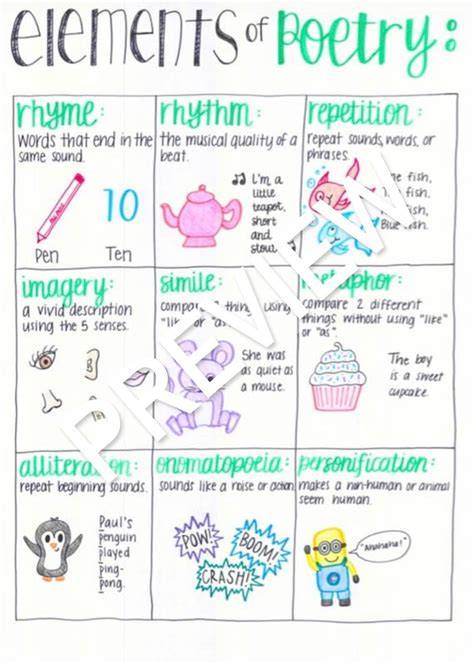 elements of Poetry:
rhyme:
words that end in the
same sound.
10
Pen
Ten
rhythm:
the musical quality of a
beat.
I'm a
little
teapot,
short
and
stout
repetition:
repeat sounds, words, or
phrases.
fish,
fish,
fish,
Blue fish.
imagery:
a vivid description
using the 5 senses.
simile:
compare 2 things using
"like" or "as".
She was
as quiet as
a mouse.
metaphor:
compare 2 different
things without using "like"
or "as".
The boy
is a sweet
cupcake.
alliteration:
repeat beginning sounds.
Paul's
penguin
played
ping-
pong.
onomatopoeia:
sounds like a noise or action
POW!
BOOM!
CRASH!
personification:
makes a non-human or animal
seem human.
PREVIEW